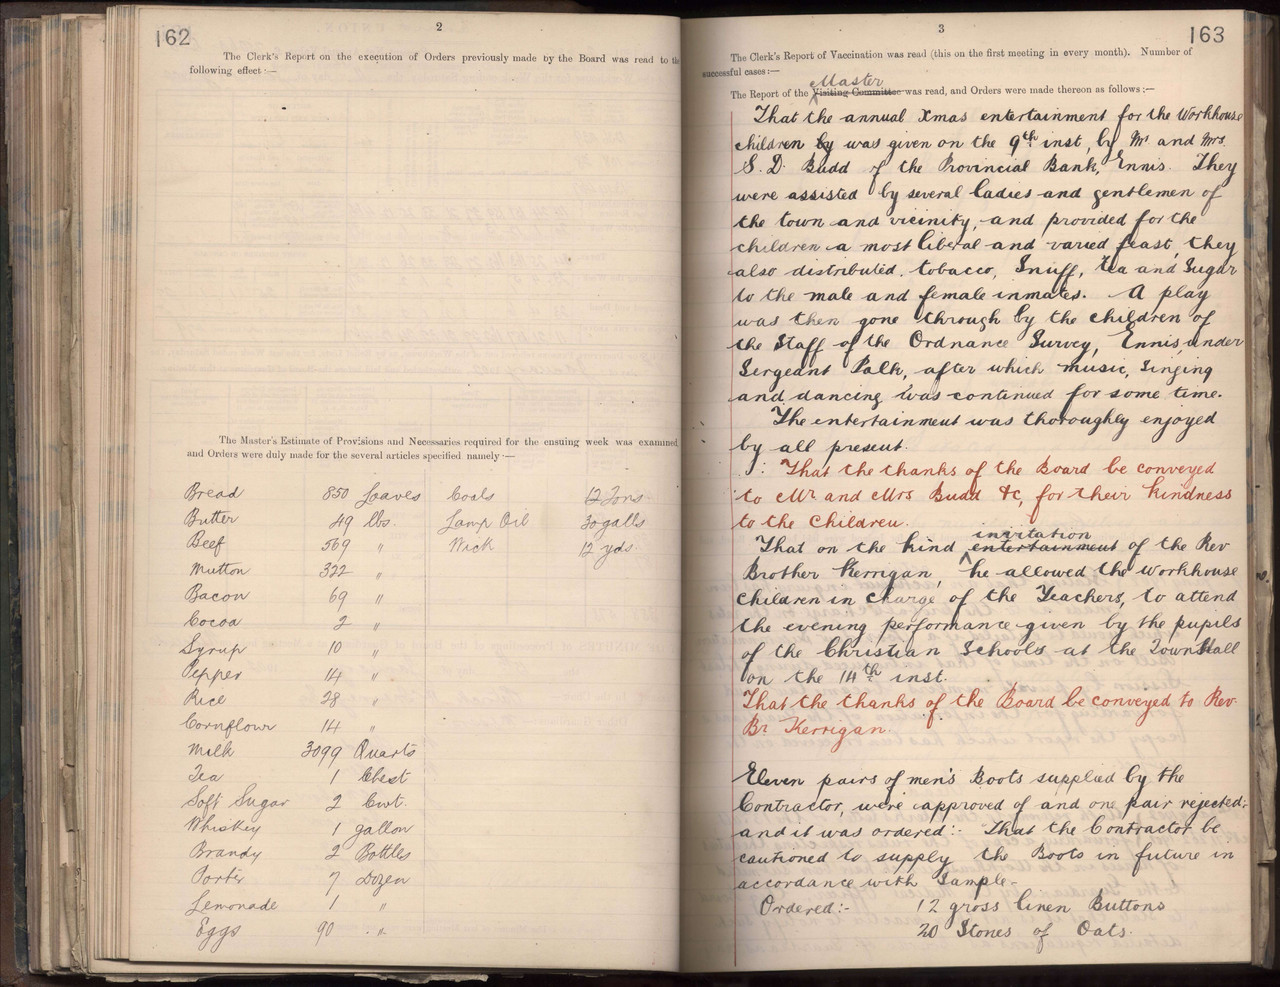 162
2
The Clerk's Report on the execution of Orders previously made by the Board was read to the
following effect :—
The Master's Estimate of Provisions and Necessaries required for the ensuing week was examined
and Orders were duly made for the several articles specified namely :—
Bread 850 Loaves Coals 12 Tons
Butter 49 lbs. Lamp Oil 30 galls
Beef 569 " Wick 12 yds.
Mutton 322 "
Bacon 69 "
Cocoa 2 "
Syrup 10 "
Pepper 14 "
Rice 28 "
Cornflour 14 "
Milk 3099 Quarts
Tea 1 Chest
Soft Sugar 2 Cwt.
Whiskey 1 gallon
Brandy 2 Bottles
Porter 7 Dozen
Lemonade 1 "
Eggs 90 "
3
163
The Clerk's Report of Vaccination was read (this on the first meeting in every month). Number of
successful cases :—
Master
The Report of the Visiting Committee was read, and Orders were made thereon as follows :—
That the annual Xmas entertainment for the Workhouse
children by was given on the 9th inst, by Mr and Mrs
S. D. Budd of the Provincial Bank, Ennis. They
were assisted by several ladies and gentlemen of
the town and vicinity, and provided for the
children a most liberal and varied feast, they
also distributed tobacco, Snuff, tea and Sugar
to the male and female inmates. A play
was then gone through by the children of
the Staff of the Ordnance Survey, Ennis, under
Sergeant Palk, after which music, singing
and dancing was continued for some time.
The entertainment was thoroughly enjoyed
by all present.
That the thanks of the Board be conveyed
to Mr and Mrs Budd &c, for their kindness
to the children.
invitation
That on the kind entertainment of the Rev
Brother Kerrigan, he allowed the Workhouse
children in charge of the Teachers, to attend
the evening performance given by the pupils
of the Christian Schools at the Town Hall
on the 14th inst.
That the thanks of the Board be conveyed to Rev.
Br Kerrigan.
Eleven pairs of men's Boots supplied by the
Contractor, were approved of and one pair rejected:-
and it was ordered:- "That the Contractor be
cautioned to supply the Boots in future in
accordance with Sample-
Ordered:- 12 gross linen Buttons
20 Stones of Oats.